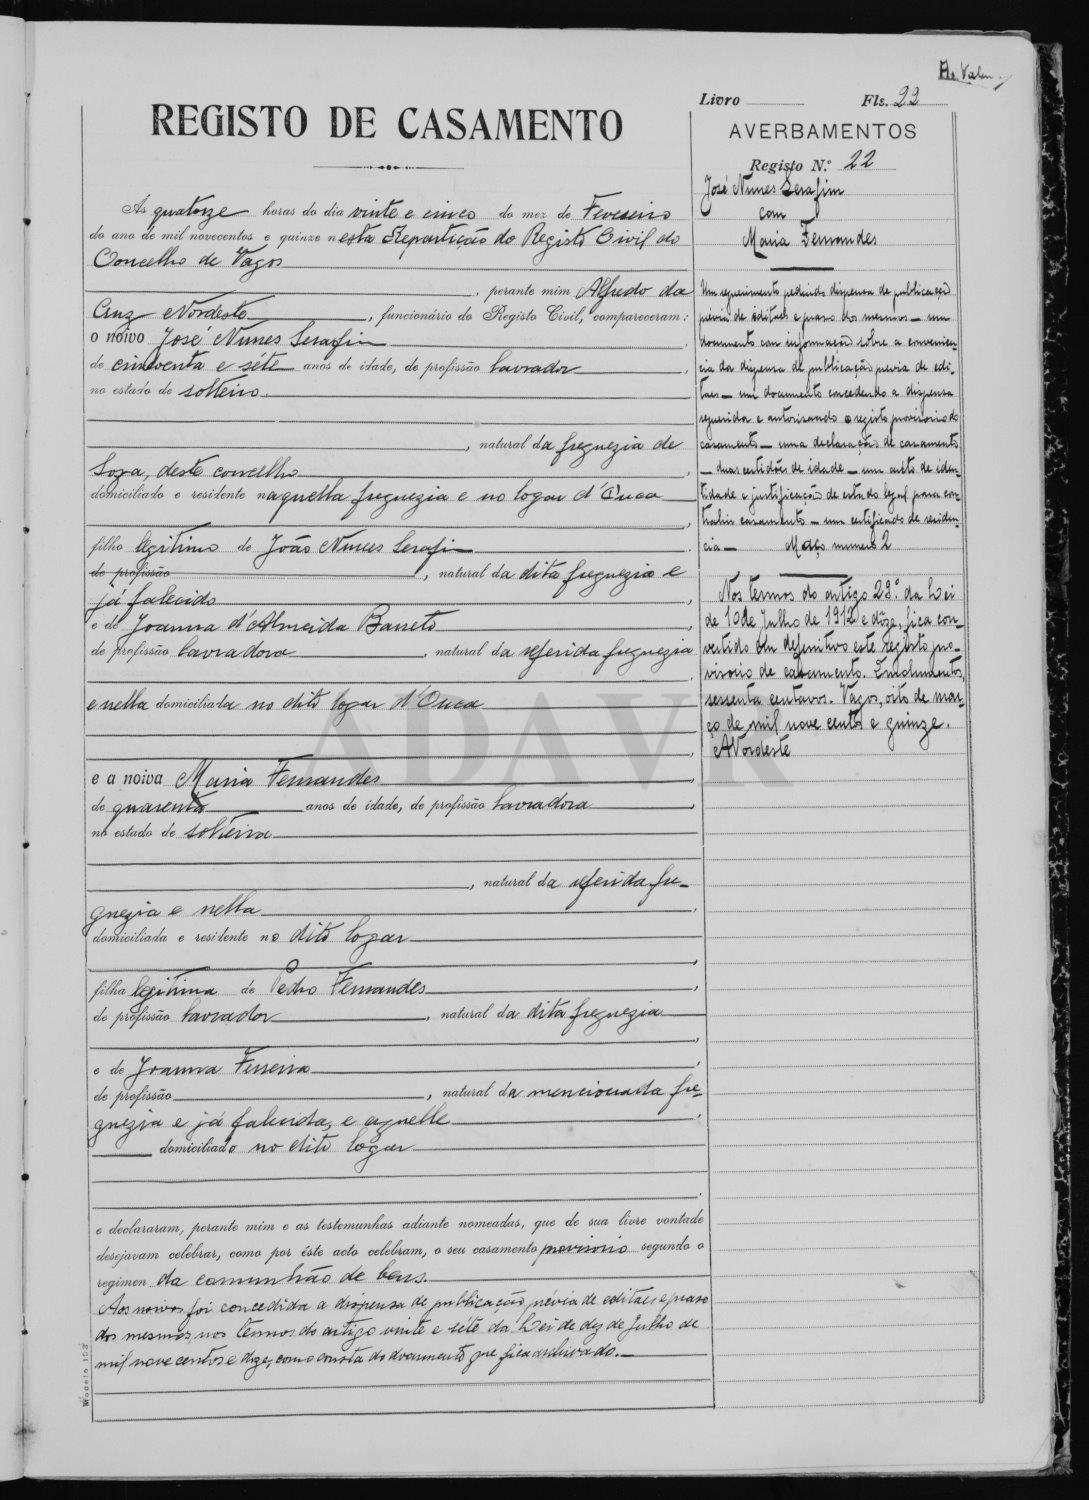 Livro
Fls. 22
REGISTO DE CASAMENTO
AVERBAMENTOS
Registo N.º 22
José Nunes Serafim
com
Maria Fernandes
Ás quatorze horas do dia vinte e cinco do mez de Fevereiro
do ano de mil novecentos e quinze nesta Repartição do Registo Civil do
Concelho de Vagos
, perante mim Alfredo da
Cruz Nordeste, funcionário do Registo Civil, compareceram:
o noivo José Nunes Serafim
de cincoenta e séte anos de idade, de profissão lavrador,
no estado de solteiro.
, natural da freguezia de
Soza, deste concelho,
domiciliado e residente naquella freguezia e no logar d'Ouca
filho legitimo de João Nunes Serafim
de profissão, natural da dita freguezia e
já falecido,
e de Joanna d'Almeida Barreto
de profissão lavradora, natural da referida freguezia
e nella domiciliada no dito logar d'Ouca
e a noiva Maria Fernandes
de quarenta anos de idade, de profissão lavradora,
no estado de solteira
, natural da referida fre-
guezia e nella,
domiciliada e residente no dito logar
filha legitima de Pedro Fernandes,
de profissão lavrador, natural da dita freguezia
e de Joanna Ferreira,
de profissão, natural da mencionada fre-
guezia e já falecida, e aquelle,
domiciliado no dito logar
e declararam, perante mim e as testemunhas adiante nomeadas, que de sua livre vontade
desejavam celebrar, como por éste acto celebram, o seu casamento provisorio segundo o
regimen da comunhão de bens.
Aos noivos foi concedida a dispensa de publicação prévia de editaes e praso
dos mesmos, nos termos do artigo vinte e séte da Lei de dez de Julho de
mil nove centos e doze, como consta do documento que fica archivado.
Modelo 102
Um requerimento pedindo dispensa de publicação
prévia de editaes e praso dos mesmos — um
documento com informação sobre a convenien-
cia da dispensa de publicação previa de edi-
taes — um documento concedendo a dispensa
requerida e autorisando o registo provisorio do
casamento — uma declaração de casamento
— duas certidões de idade — um auto de iden-
tidade e justificação de estado legal para con-
trahir casamento — um certificado de residen-
cia — Maço numero 2
Nos termos do artigo 29.º da Lei
de 10 de Julho de 1912 e dôze, fica con-
vertido em definitivo este registo pro-
visorio de casamento. Emolumentos,
sessenta centavos. Vagos, oito de mar-
ço de mil nove centos e quinze.
ANordeste
ADAVR